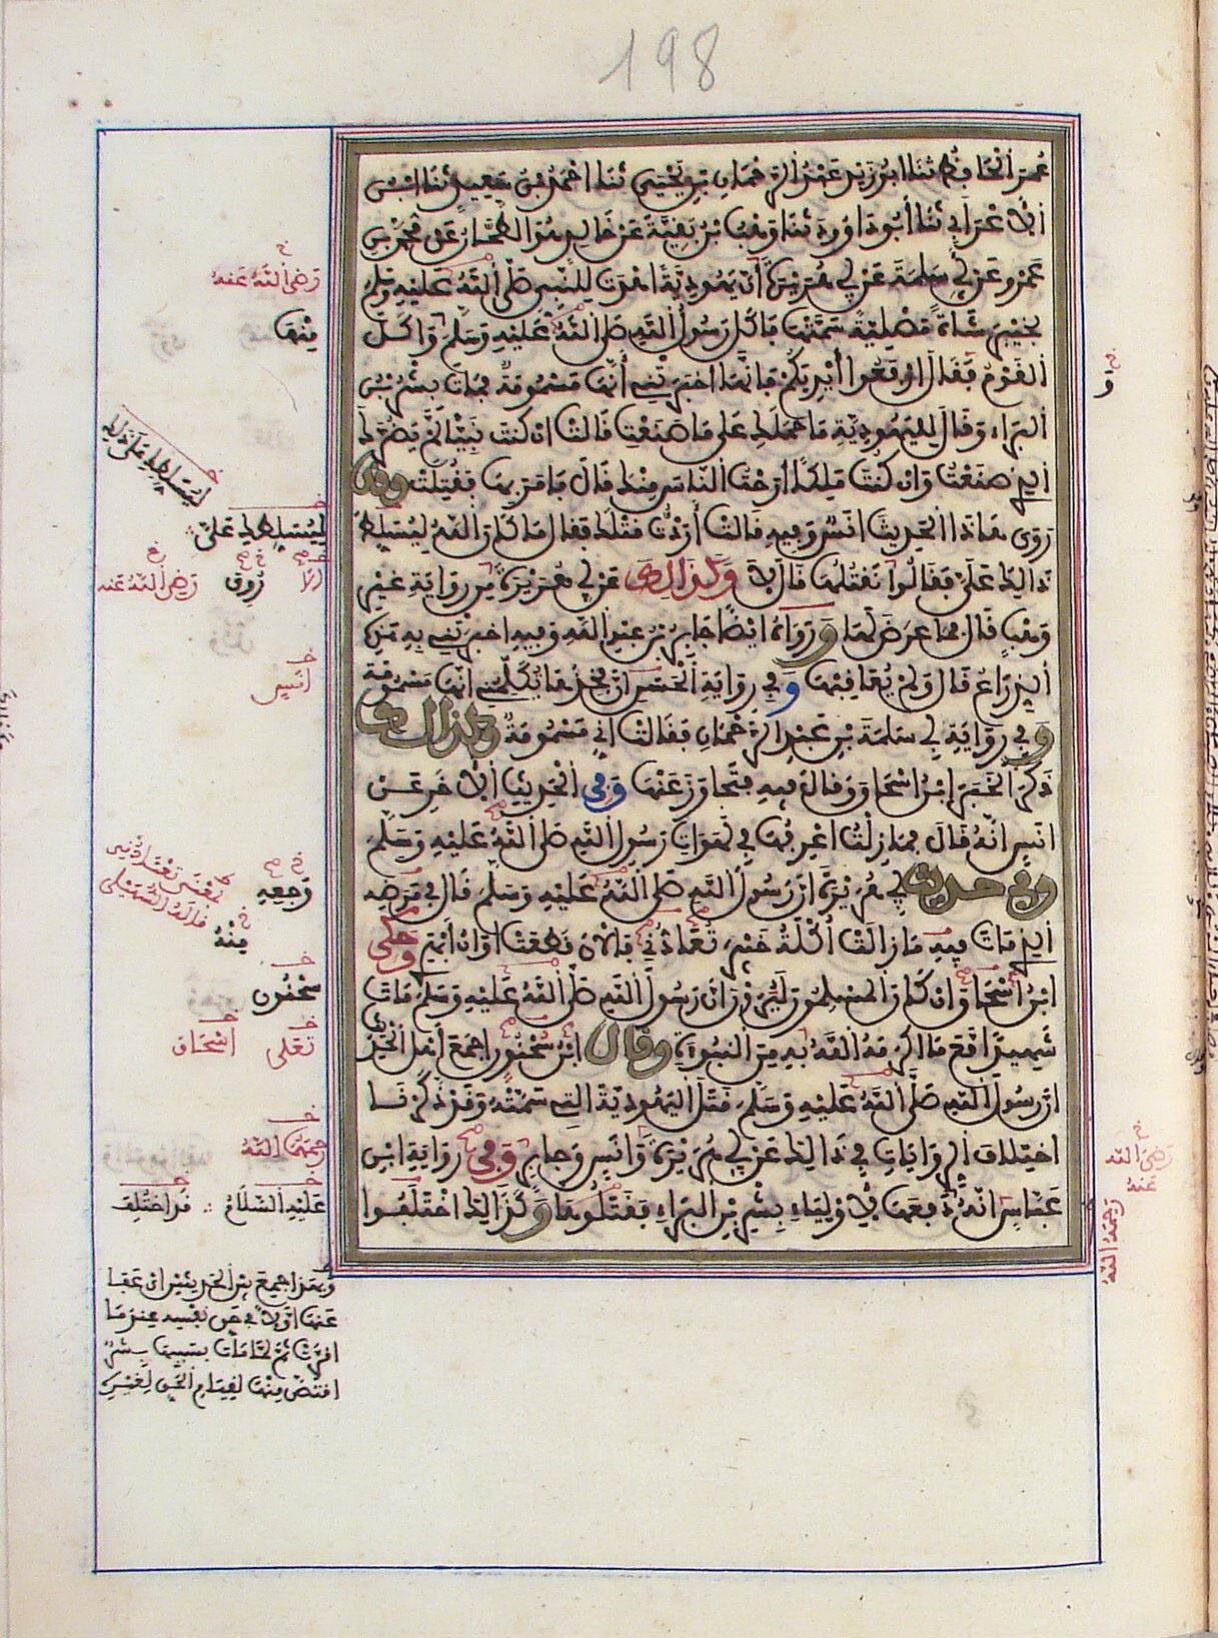 198
عُمَرَ الْحَافِظُ ثَنَا أَبُو زَيْدٍ عَبْدُ الرَّحْمَانِ بْنُ يَحْيَى ثَنَا أَحْمَدُ بْنُ سَعِيدٍ ثَنَا ابْنُ
الْأَعْرَابِي ثَنَا أَبُو دَاوُودَ ثَنَا وَهْبُ بْنُ بَقِيَّةَ عَنْ خَالِدٍ هُوَ الطَّحَّانُ عَنْ مُحَمَّدِ بْنِ
عَمْرٍو عَنْ أَبِي سَلَمَةَ عَنْ أَبِي هُرَيْرَةَ أَنَّ يَهُودِيَّةً أَهْدَتْ لِلنَّبِيِّ صَلَّى اللَّهُ عَلَيْهِ وَسَلَّمَ
بِخَيْبَرَ شَاةً مَصْلِيَّةً سَمَّتْهَا فَأَكَلَ رَسُولُ اللَّهِ صَلَّى اللَّهُ عَلَيْهِ وَسَلَّمَ وَأَكَلَ
الْقَوْمُ فَقَالَ ارْفَعُوا أَيْدِيَكُمْ فَإِنَّهَا أَخْبَرَتْنِي أَنَّهَا مَسْمُومَةٌ فَمَاتَ بِشْرُ بْنُ
الْبَرَاءِ وَقَالَ لِلْيَهُودِيَّةِ مَا حَمَلَكِ عَلَى مَا صَنَعْتِ قَالَتْ إِنْ كُنْتَ نَبِيًّا لَمْ يَضُرَّكَ
الَّذِي صَنَعْتُ وَإِنْ كُنْتَ مَلِكًا أَرَحْتُ النَّاسَ مِنْكَ قَالَ فَأَمَرَ بِهَا فَقُتِلَتْ وَقَدْ
رَوَى هَاذَا الْحَدِيثَ أَنَسٌ وَفِيهِ قَالَتْ أَرَدْتُ قَتْلَكَ فَقَالَ مَا كَانَ اللَّهُ لِيُسَلِّطَكِ
ذَالِكَ عَلَيَّ فَقَالُوا نَقْتُلُهَا قَالَ لَا وَكَذَالِكَ عَنْ أَبِي هُرَيْرَةَ مِنْ رِوَايَةِ غَيْرِ
وَهْبٍ قَالَ فَمَا عَرَضَ لَهَا وَرَوَاهُ أَيْضًا جَابِرُ بْنُ عَبْدِ اللَّهِ وَفِيهِ أَخْبَرَتْنِي بِهِ هَذِهِ
الذِّرَاعُ قَالَ وَلَمْ يُعَاقِبْهَا وَفِي رِوَايَةِ الْحَسَنِ أَنَّ فَخِذَهَا تُكَلِّمُنِي أَنَّهَا مَسْمُومَة
وَفِي رِوَايَةِ أَبِي سَلَمَةَ بْنِ عَبْدِ الرَّحْمَانِ فَقَالَتْ إِنِّي مَسْمُومَةٌ وَكَذَالِكَ
ذَكَرَ الْخَبَرَ ابْنُ إِسْحَاقَ وَقَالَ فِيهِ فَتَجَاوَزَ عَنْهَا وَفِي الْحَدِيثِ الْآخَرِ عَنْ
أَنَسٍ أَنَّهُ قَالَ فَمَا زِلْتُ أَعْرِفُهَا فِي لَهَوَاتِ رَسُولِ اللَّهِ صَلَّى اللَّهُ عَلَيْهِ وَسَلَّمَ
وَفِي حَدِيثِ أَبِي هُرَيْرَةَ أَنَّ رَسُولَ اللَّهِ صَلَّى اللَّهُ عَلَيْهِ وَسَلَّمَ قَالَ فِي مَرَضِهِ
الَّذِي مَاتَ فِيهِ مَا زَالَتْ أُكْلَةُ خَيْبَرَ تُعَادُّنِي فَالْآنَ قَطَعَتْ أَوَانَ أَبْهَرِي وَحَكَى
ابْنُ إِسْحَاقَ وَإِنْ كَانَ الْمُسْلِمُونَ لَيَرَوْنَ أَنَّ رَسُولَ اللَّهِ صَلَّى اللَّهُ عَلَيْهِ وَسَلَّمَ مَاتَ
شَهِيدًا مَعَ مَا أَكْرَمَهُ اللَّهُ بِهِ مِنَ النُّبُوءَةِ وَقَالَ ابْنُ سُحْنُونٍ أَجْمَعَ أَهْلُ الْحَدِيثِ
أَنَّ رَسُولَ اللَّهِ صَلَّى اللَّهُ عَلَيْهِ وَسَلَّمَ قَتَلَ الْيَهُودِيَّةَ الَّتِي سَمَّتْهُ وَقَدْ ذَكَرْنَا
اخْتِلَافَ الرِّوَايَاتِ فِي ذَالِكَ عَنْ أَبِي هُرَيْرَةَ وَأَنَسٍ وَجَابِرٍ وَفِي رِوَايَةِ ابْنِ
عَبَّاسٍ أَنَّهُ دَفَعَهَا لِأَوْلِيَاءِ بِشْرِ بْنِ الْبَرَاءِ فَقَتَلُوهَا وَكَذَالِكَ اخْتَلَفُوا
رَضِيَ اللَّهُ عَنْهُ
مِنْهَا
لِيُسَلِّطَكِ عَلَى ذَلِكَ
لِيُسَلِّطَكِ عَلَيَّ
رُوِيَ
رَضِيَ اللَّهُ عَنْهُ
أَنَسٍ
وَجَعِهِ
قَالَهُ السُّهَيْلِي
مِنْهُ
سُحْنُون
تَعَلَى
إِسْحَاق
رَحِمَهُمَا اللَّهُ
عَلَيْهِ السَّلَامُ
قَدِ اخْتُلِفَ
وَيُعَدُّ أَجْمَعَ بَيْنَ الْحَدِيثَيْنِ أَنْ عَفَا
عَنْهَا أَوَّلًا فِي حَقِّ نَفْسِهِ عِنْدَمَا
أَقَرَّتْ ثُمَّ لَمَّا مَاتَ بِسَبَبِهَا بِشْرٌ
اقْتَصَّ مِنْهَا لِقِيَامِ الْحَقِّ لِغَيْرِهِ
رَضِيَ اللَّهُ
عَنْهُ
رَحِمَهُ اللَّهُ